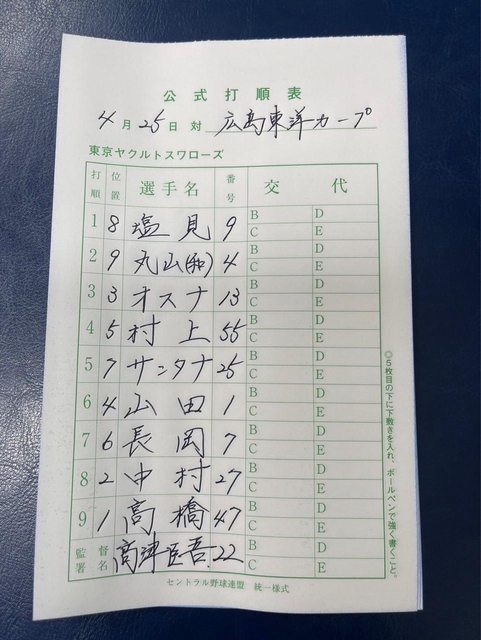 公式打順表
4月25日 対 広島東洋カープ
東京ヤクルトスワローズ
打順 位置 選手名 番号 交代
1 8 塩見 9 B D C E
2 9 丸山(和) 4 B D C E
3 3 オスナ 13 B D C E
4 5 村上 55 B D C E
5 7 サンタナ 25 B D C E
6 4 山田 1 B D C E
7 6 長岡 7 B D C E
8 2 中村 27 B D C E
9 1 高橋 47 B D C E
監督署名 高津臣吾 22 B D C E
セントラル野球連盟 統一様式
◎5枚目の下に下敷きを入れ、ボールペンで強く書くこと。